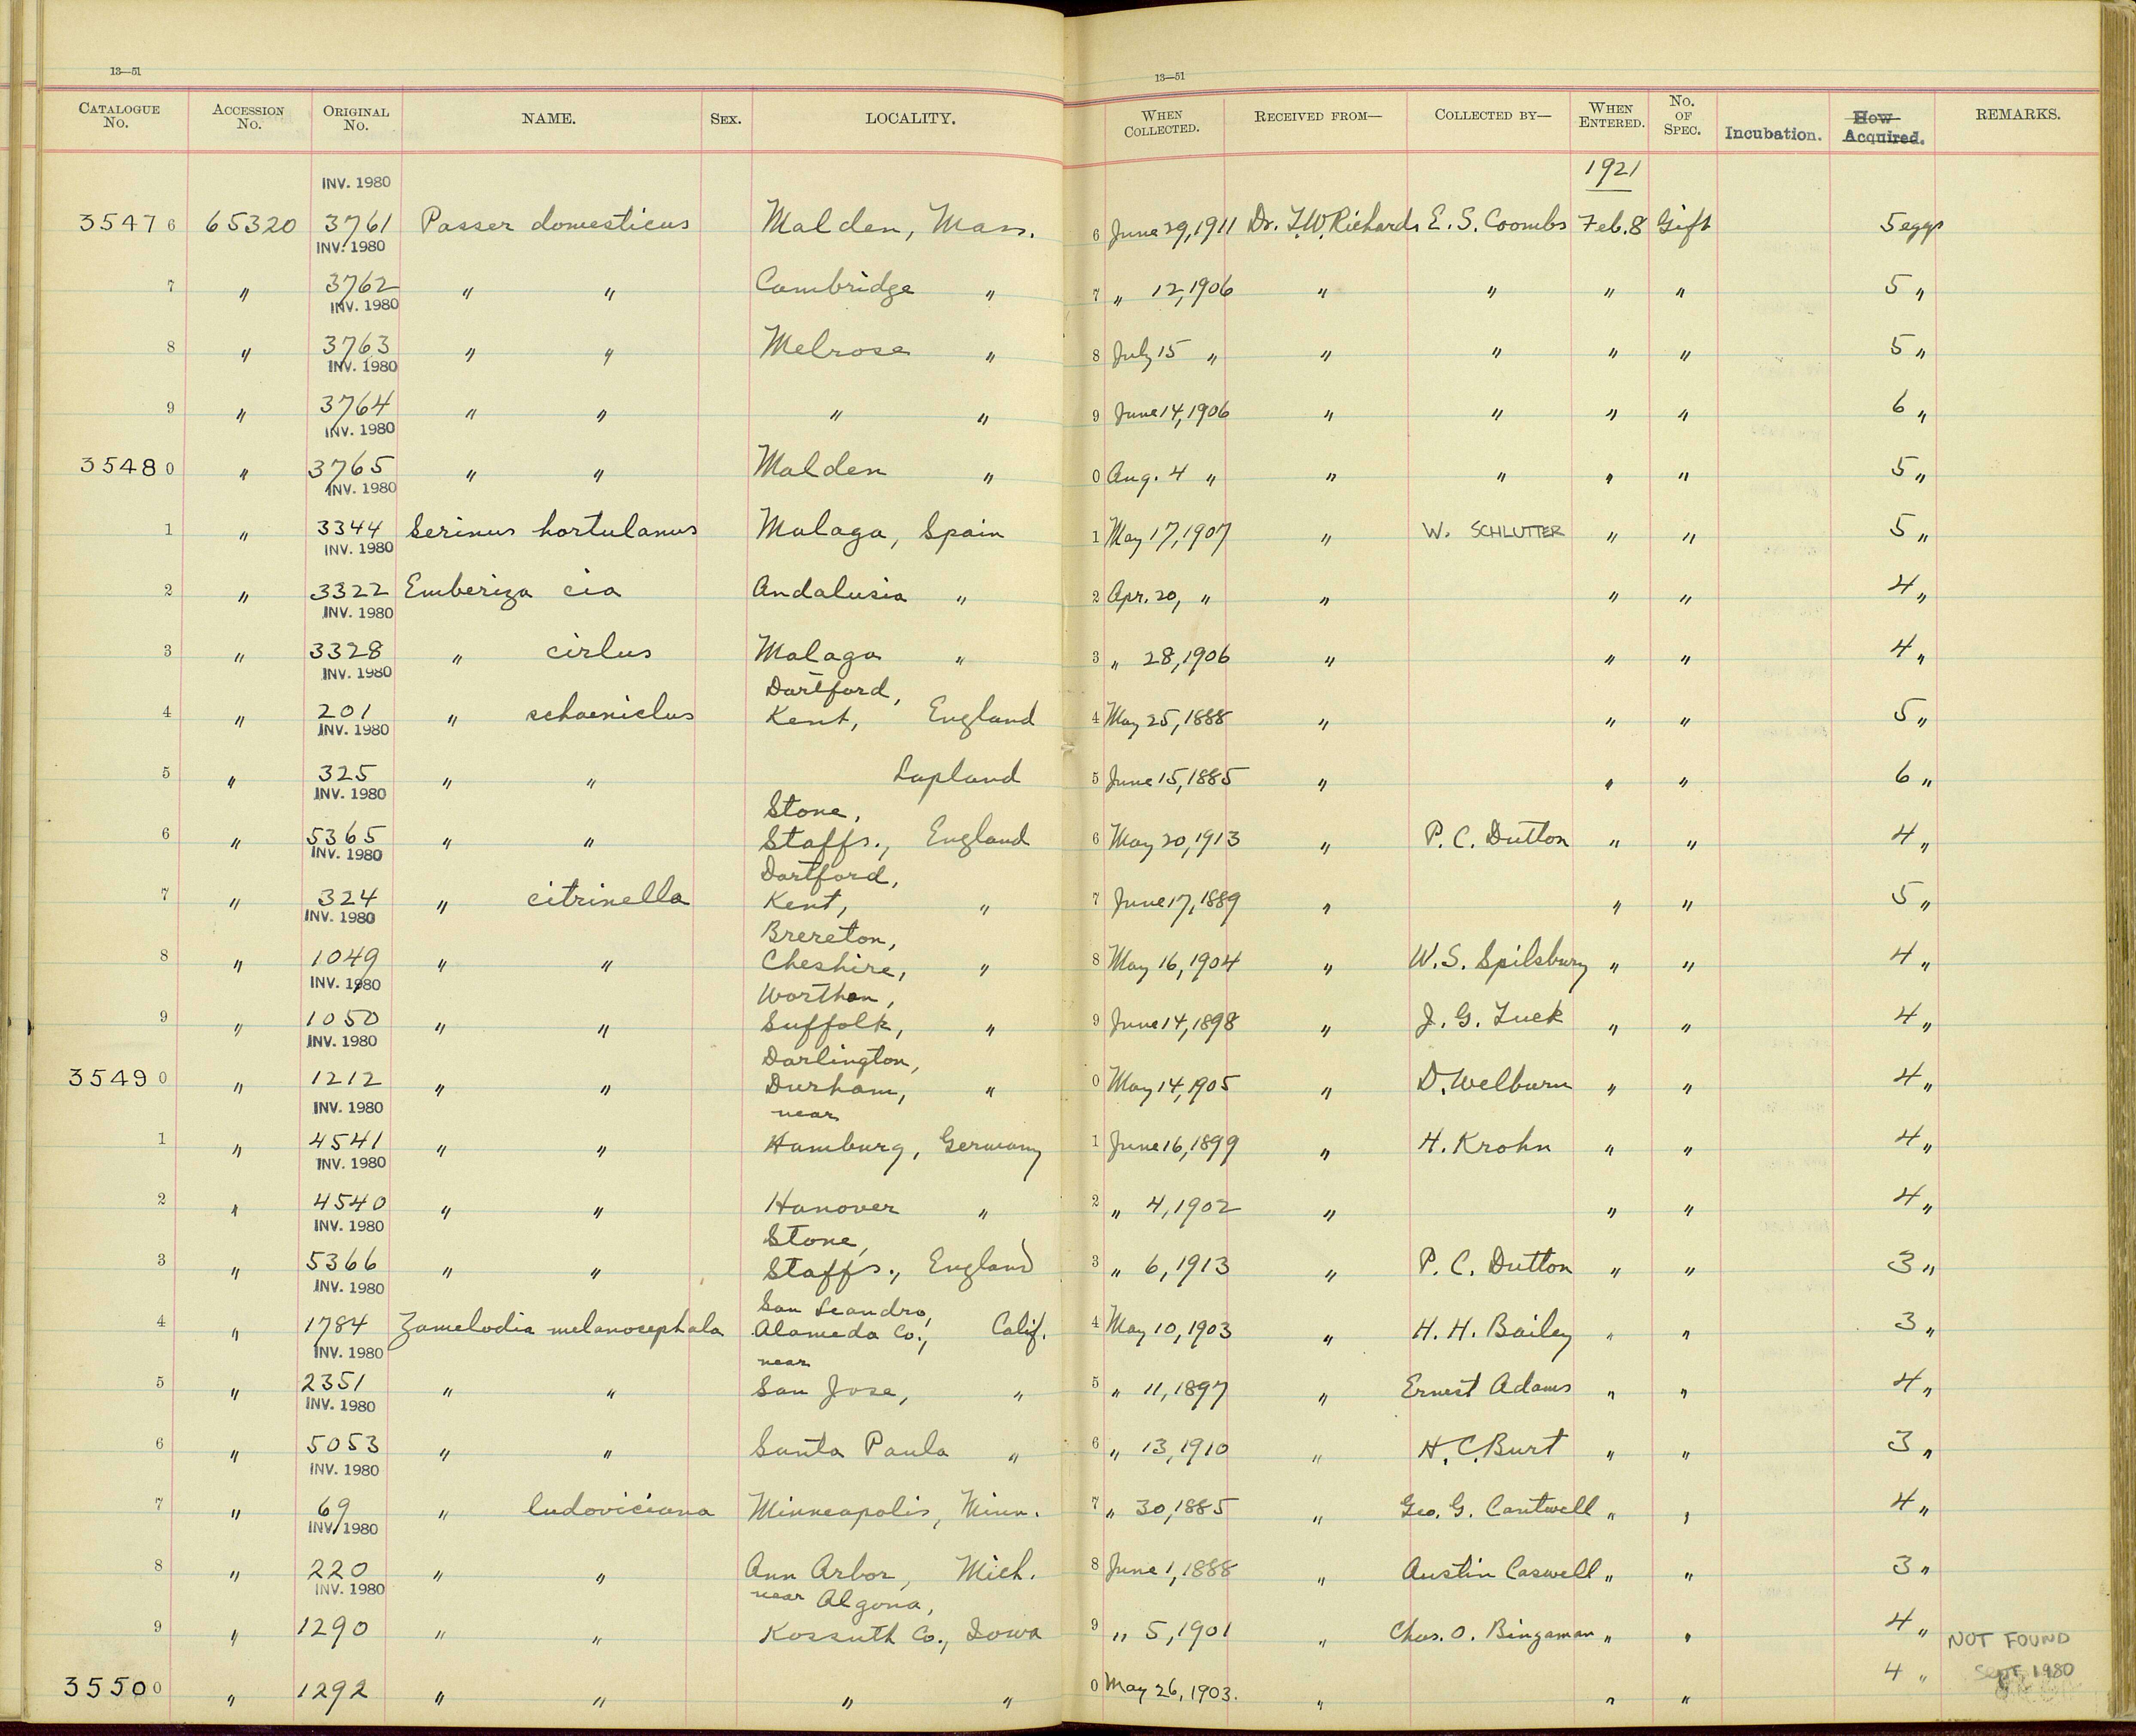 13—51
13—51
CATALOGUE No. ACCESSION No. ORIGINAL No. NAME. SEX. LOCALITY. WHEN COLLECTED. RECEIVED FROM— COLLECTED BY— WHEN ENTERED. No. OF SPEC. Incubation. How Acquired. REMARKS.
1921
INV. 1980
35476 65320 3761 Passer domesticus Malden, Mass. 6 June 29, 1911 Dr. T.W. Richards E. S. Coombs Feb. 8 Gift 5 eggs
INV. 1980
7 " 3762 " " Cambridge " 7 " 12, 1906 " " " " 5 "
INV. 1980
8 " 3763 " " Melrose " 8 July 15 " " " " " 5 "
INV. 1980
9 " 3764 " " " " 9 June 14, 1906 " " " " 6 "
INV. 1980
35480 " 3765 " " Malden " 0 Aug. 4 " " " " " 5 "
INV. 1980
1 " 3344 Serinus hortulanus Malaga, Spain 1 May 17, 1907 " W. SCHLUTTER " " 5 "
INV. 1980
2 " 3322 Emberiza cia Andalusia " 2 Apr. 20, " " " " 4 "
INV. 1980
3 " 3328 " cirlus Malaga " 3 " 28, 1906 " " " 4 "
INV. 1980
Dartford,
4 " 201 " schoeniclus Kent, England 4 May 25, 1888 " " " 5 "
INV. 1980
5 " 325 " " Lapland 5 June 15, 1885 " " " 6 "
INV. 1980
Stone,
6 " 5365 " " Staffs., England 6 May 20, 1913 " P. C. Dutton " " 4 "
INV. 1980
Dartford,
7 " 324 " citrinella Kent, " 7 June 17, 1889 " " " 5 "
INV. 1980
Brereton,
8 " 1049 " " Cheshire, " 8 May 16, 1904 " W. S. Spilsbury " " 4 "
INV. 1980
Wortham,
9 " 1050 " " Suffolk, " 9 June 14, 1898 " J. G. Tuck " " 4 "
INV. 1980
Darlington,
35490 " 1212 " " Durham, " 0 May 14, 1905 " D. Welburn " " 4 "
INV. 1980
near
1 " 4541 " " Hamburg, Germany 1 June 16, 1899 " H. Krohn " " 4 "
INV. 1980
2 " 4540 " " Hanover " 2 " 4, 1902 " " " 4 "
INV. 1980
Stone,
3 " 5366 " " Staffs., England 3 " 6, 1913 " P. C. Dutton " " 3 "
INV. 1980
San Leandro,
4 " 1784 Zamelodia melanocephala Alameda Co., Calif. 4 May 10, 1903 " H. H. Bailey " " 3 "
INV. 1980
near
5 " 2351 " " San Jose, " 5 " 11, 1897 " Ernest Adams " " 4 "
INV. 1980
6 " 5053 " " Santa Paula " 6 " 13, 1910 " H. C. Burt " " 3 "
INV. 1980
7 " 69 " ludoviciana Minneapolis, Minn. 7 " 30, 1885 " Geo. G. Cantwell " " 4 "
INV. 1980
8 " 220 " " Ann Arbor, Mich. 8 June 1, 1888 " Austin Caswell " " 3 "
INV. 1980
near Algona,
9 " 1290 " " Kossuth Co., Iowa 9 " 5, 1901 " Chas. O. Bingaman " " 4 " NOT FOUND
35500 " 1292 " " " " 0 May 26, 1903. " " " 4 " Sept. 1980